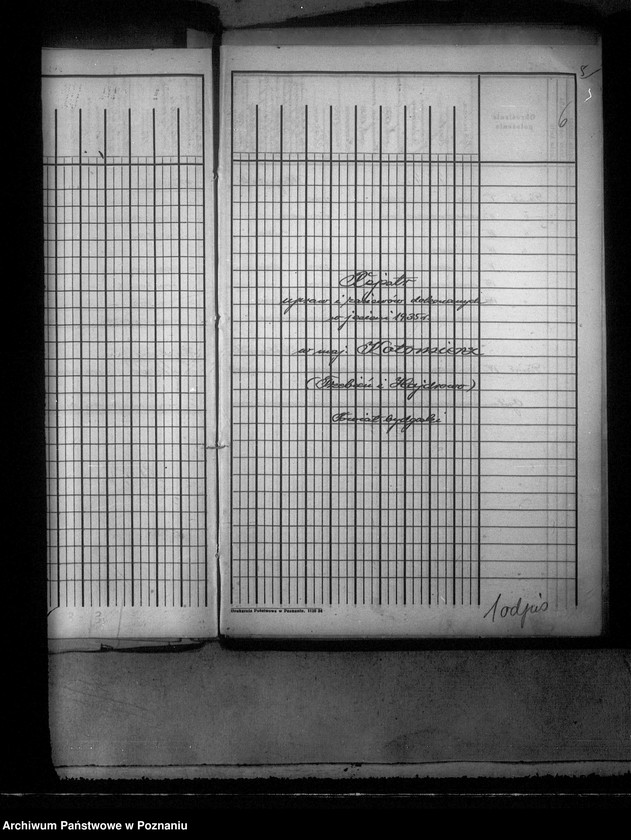 8
6
upraw i zasiewów dokonanych
w jesieni 1935 r.
w maj. Kotomierz
(Trzebień i Hajdrowo)
Powiat bydgoski
Drukarnia Państwowa w Poznaniu.
1 odpis
Archiwum Państwowe w Poznaniu